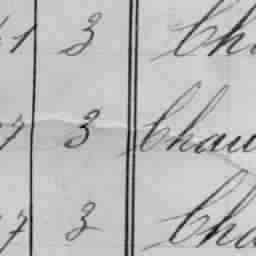 1 3 Cha
7 3 Chau
7 3 Cha